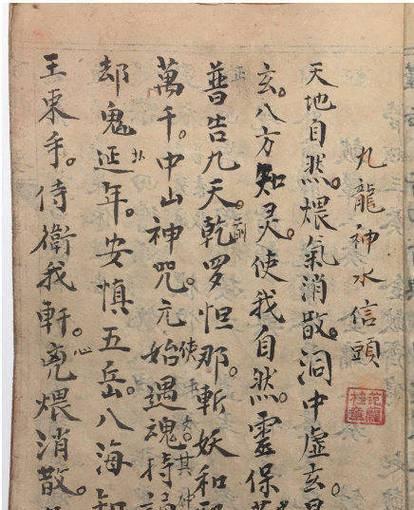 九龍神水信頭
天地自然。煨氣消散。洞中虛玄。
玄。八方知灵。使我自然。靈保
普告九天。乾罗怛那。斬妖和
萬千。中山神咒。元始遇魂。持
却鬼延年。安慎五岳。八海知
王東手。侍衛我軒。兇煨消散。